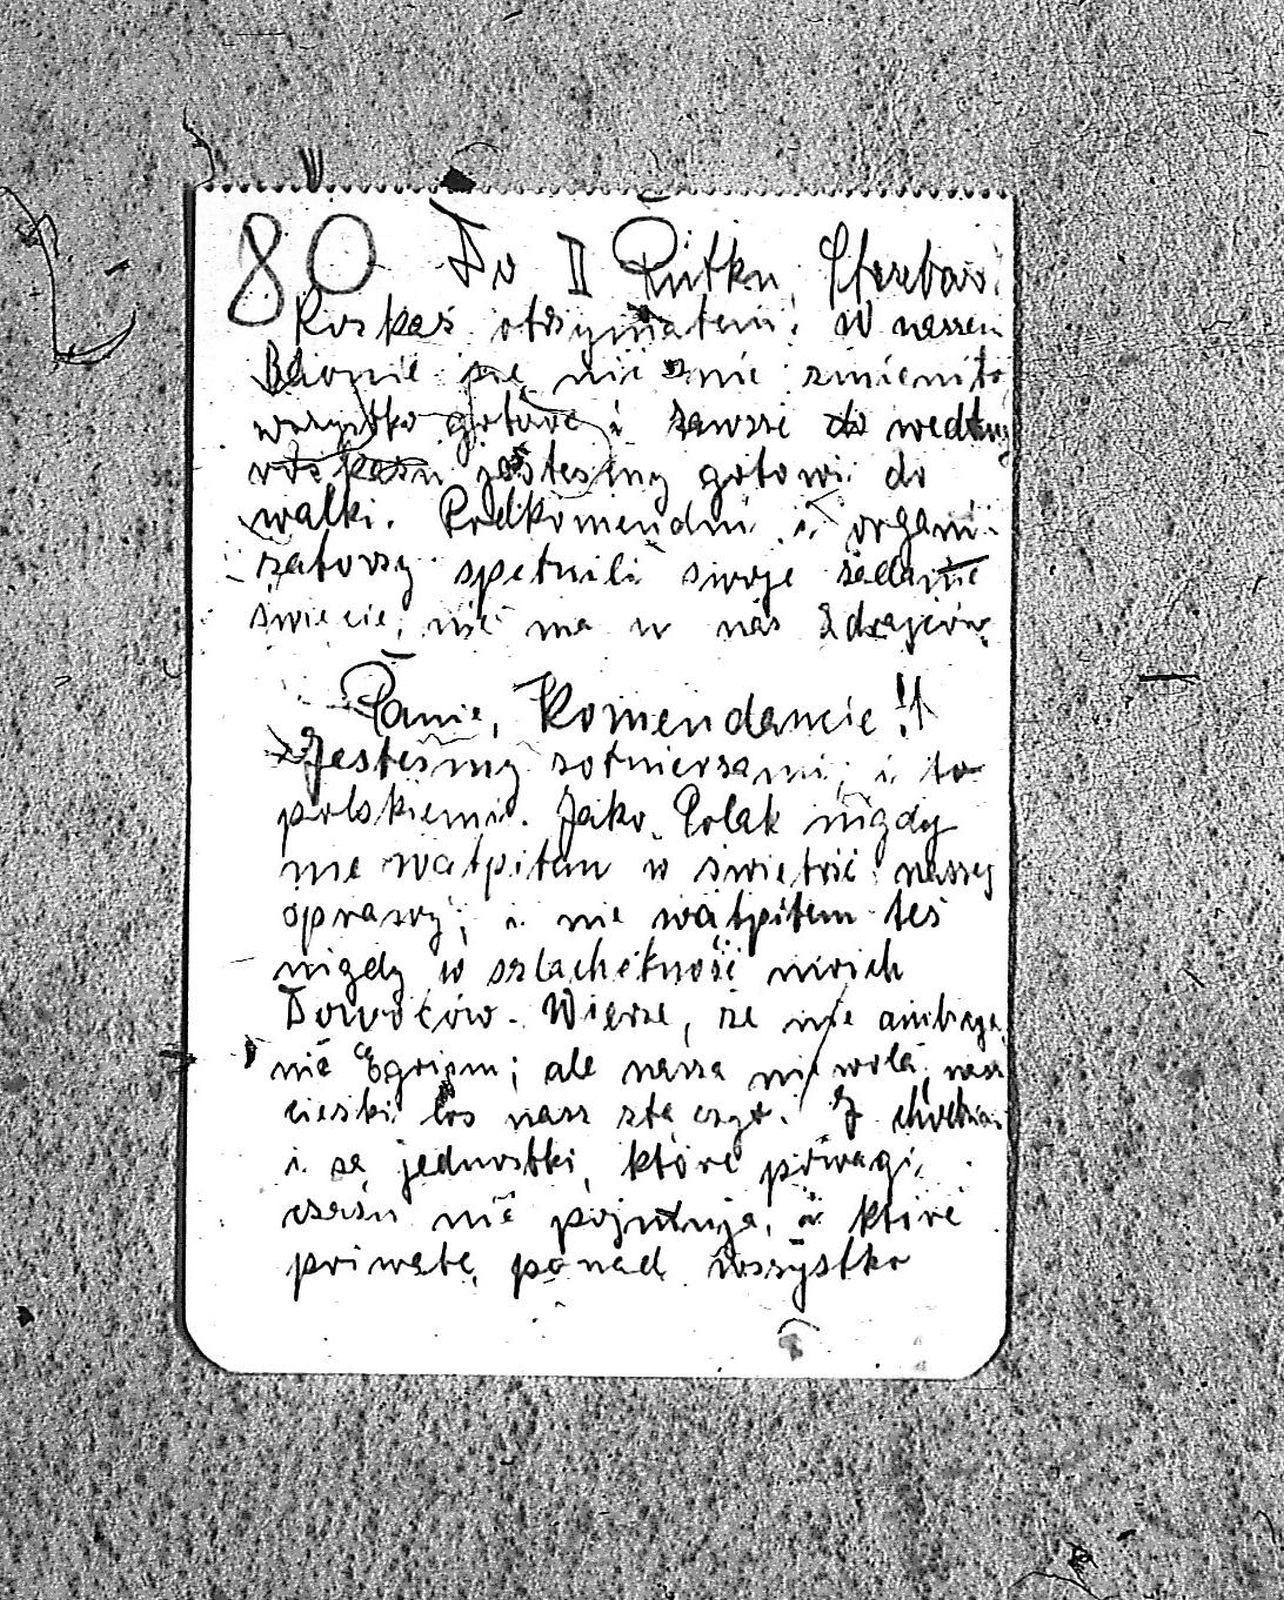 80 Do II Pułku
Roskaz otrzymałem. W naszem
Baonie się nic nie zmieniło
wszystko gotowe i zawsze według
roskazu jesteśmy gotowi do
walki. Podkomendni i organi-
zatorzy spełnili swoje zadanie
święcie, nie ma w nas zdrajców.
Panie Komendancie!!
Jesteśmy żołnierzami, i to
polskiemi. Jako Polak nigdy
nie wątpiłem w świętość naszej
sprawy; i nie wątpiłem też
nigdy w szlachetność moich
Dowótców. Wierzę, że nie
nie Egoizm; ale nasza niewola,
cieżki los nasz złączył. I
i są jednostki, które powagi
czasu nie pojmują, a które
priwatę ponad wszystko